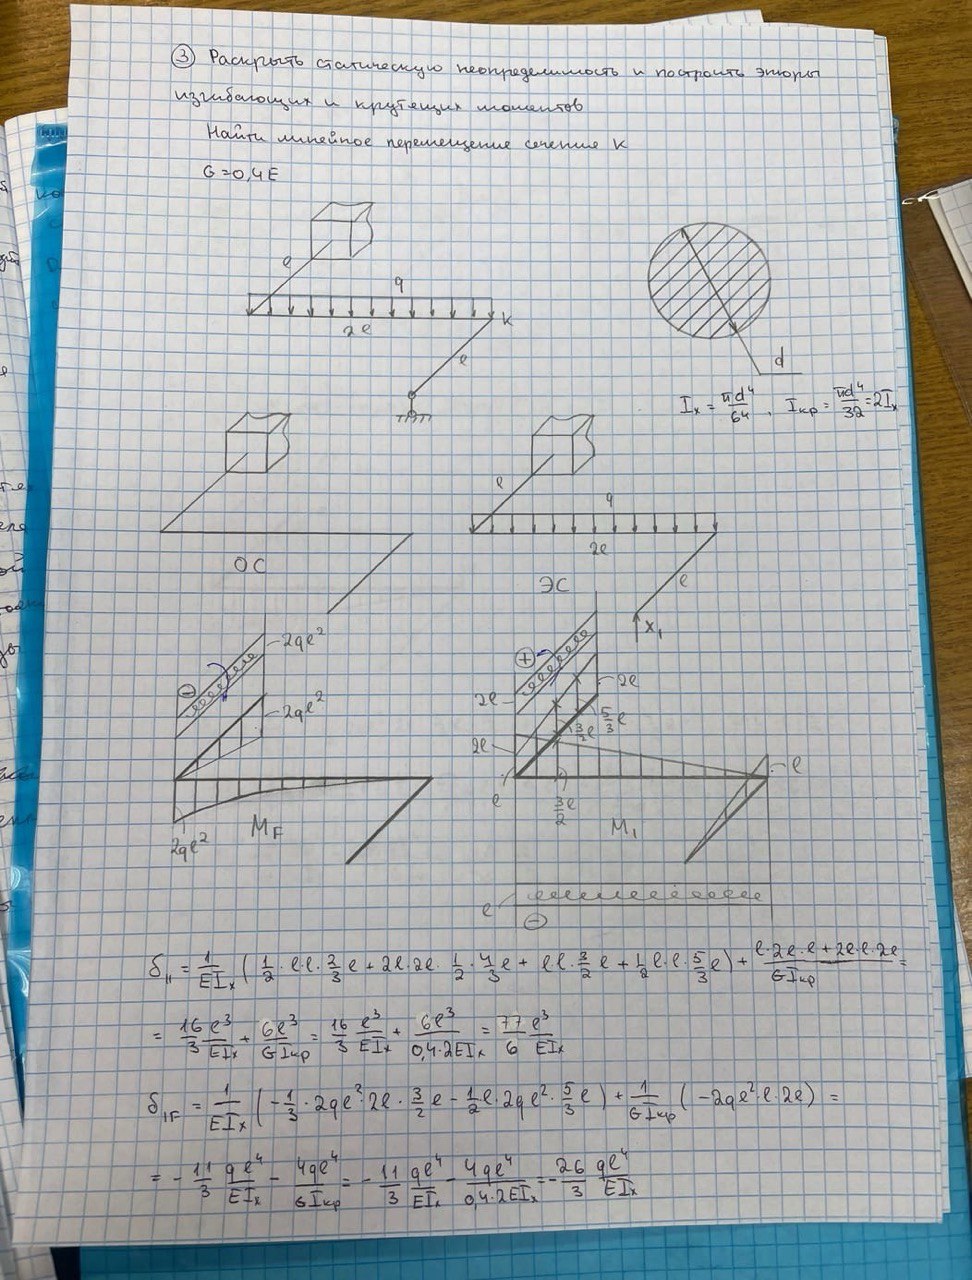 ③ Раскрыть статическую неопределимость и построить эпюры
изгибающих и крутящих моментов
Найти линейное перемещение сечение K
G = 0,4E
l
q
2l
K
l
d
Iₓ = πd⁴/64 , Iкр = πd⁴/32 = 2Iₓ
ОС
l
q
2l
l
X₁
ЭС
⊖
2ql²
2ql²
2ql²
M_F
⊕
2l
2l
2l
5/3 l
3/2 l
l
3/2 l
l
M₁
l
⊖
δ₁₁ = 1/EIₓ ( 1/2 · l·l · 2/3 l + 2l·2l · 1/2 · 4/3 l + l·l · 3/2 l + 1/2 l·l · 5/3 l ) + (l·2l·l + 2l·l·2l)/GIкр =
= 16/3 l³/EIₓ + 6l³/GIкр = 16/3 l³/EIₓ + 6l³/0,4·2EIₓ = 77/6 l³/EIₓ
δ₁F = 1/EIₓ ( -1/3 · 2ql² · 2l · 3/2 l - 1/2 l · 2ql² · 5/3 l ) + 1/GIкр ( -2ql² · l · 2l ) =
= - 11/3 ql⁴/EIₓ - 4ql⁴/GIкр = - 11/3 ql⁴/EIₓ - 4ql⁴/0,4·2EIₓ = - 26/3 ql⁴/EIₓ